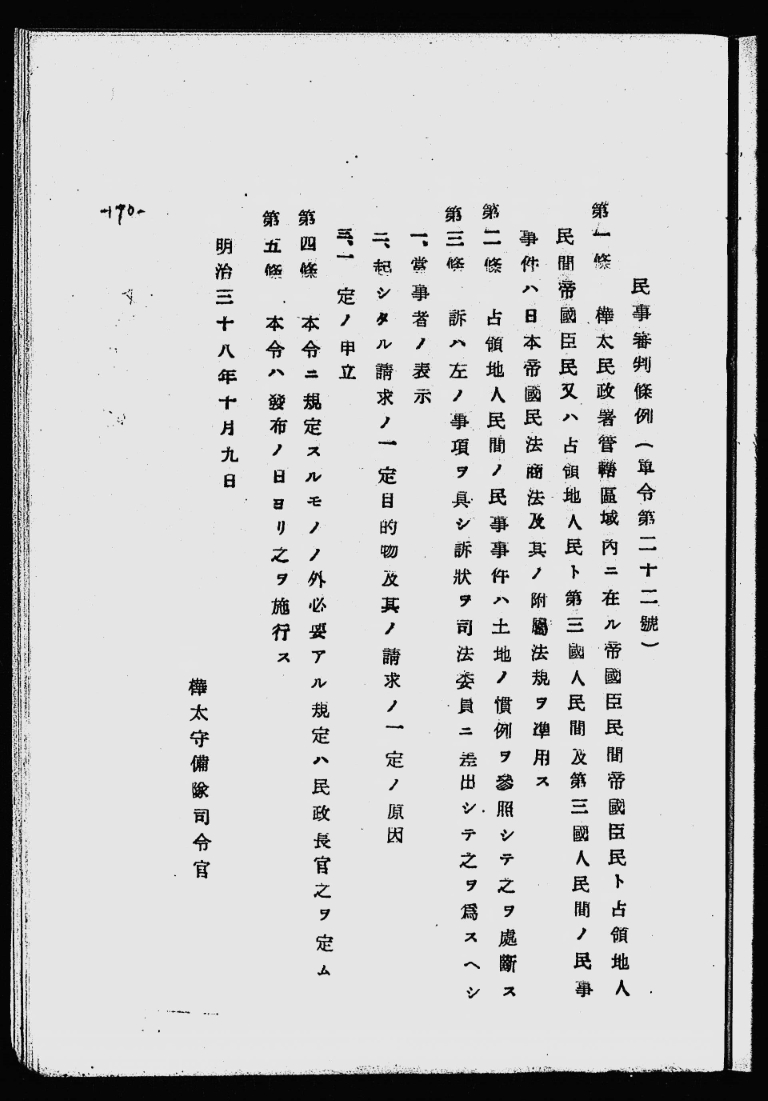 民事審判條例(軍令第二十二號)
第一條　樺太民政署管轄區域內ニ在ル帝國臣民間帝國臣民ト占領地人
民間帝國臣民又ハ占領地人民ト第三國人民間及第三國人民間ノ民事
事件ハ日本帝國民法商法及其ノ附屬法規ヲ準用ス
第二條　占領地人民間ノ民事事件ハ土地ノ慣例ヲ參照シテ之ヲ處斷ス
第三條　訴ハ左ノ事項ヲ具シ訴狀ヲ司法委員ニ差出シテ之ヲ爲スヘシ
一、當事者ノ表示
二、起シタル請求ノ一定目的物及其ノ請求ノ一定ノ原因
三、一定ノ申立
第四條　本令ニ規定スルモノノ外必要アル規定ハ民政長官之ヲ定ム
第五條　本令ハ發布ノ日ヨリ之ヲ施行ス
明治三十八年十月九日
樺太守備隊司令官
-190-